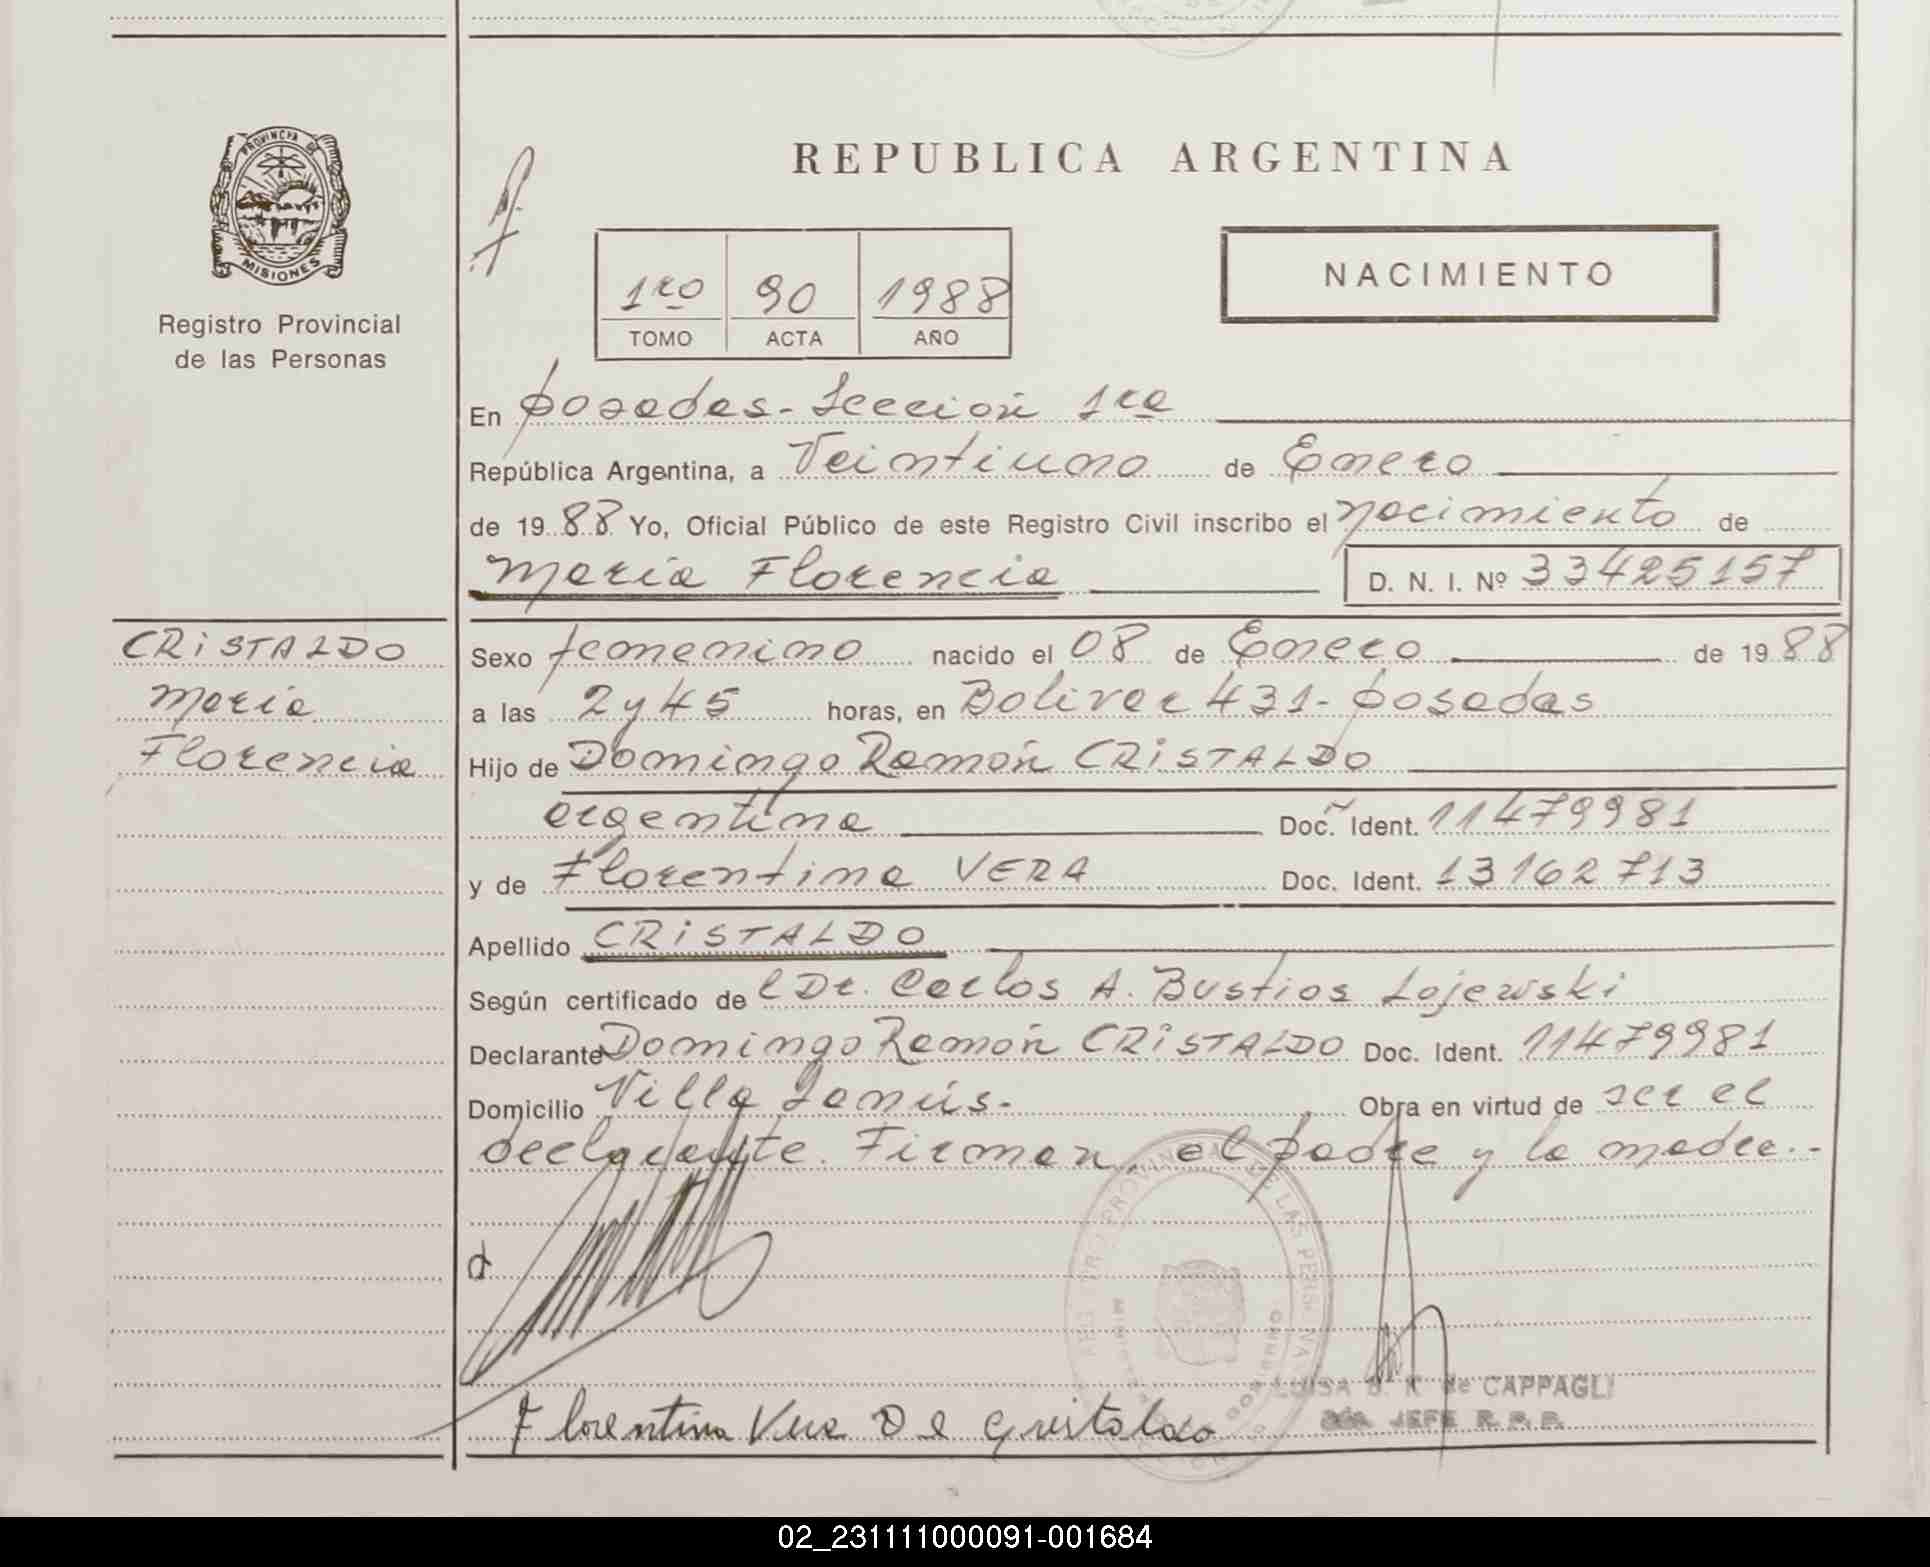 PROVINCIA DE
MISIONES
Registro Provincial
de las Personas
REPUBLICA ARGENTINA
1ro 90 1988
TOMO ACTA AÑO
NACIMIENTO
En posadas - Sección 1ra
República Argentina, a Veintiuno de Enero
de 1988 Yo, Oficial Público de este Registro Civil inscribo el nacimiento de
María Florencia D. N. I. Nº 33425157
CRISTALDO
María
Florencia
Sexo femenino nacido el 08 de Enero de 1988
a las 2 y 45 horas, en Bolivar 431 - posadas
Hijo de Domingo Ramón CRISTALDO
argentina Doc. Ident. 11479981
y de Florentina VERA Doc. Ident. 13162713
Apellido CRISTALDO
Según certificado de l Dr. Carlos A. Bustios Lojewski
Declarante Domingo Ramón CRISTALDO Doc. Ident. 11479981
Domicilio Villa Lanús.- Obra en virtud de ser el
declarante. Firman, el padre y la madre.-
Florentina Vera De Cristaldo
LUISA de CAPPAGLI
JEFE R. P. P.
02_231111000091-001684